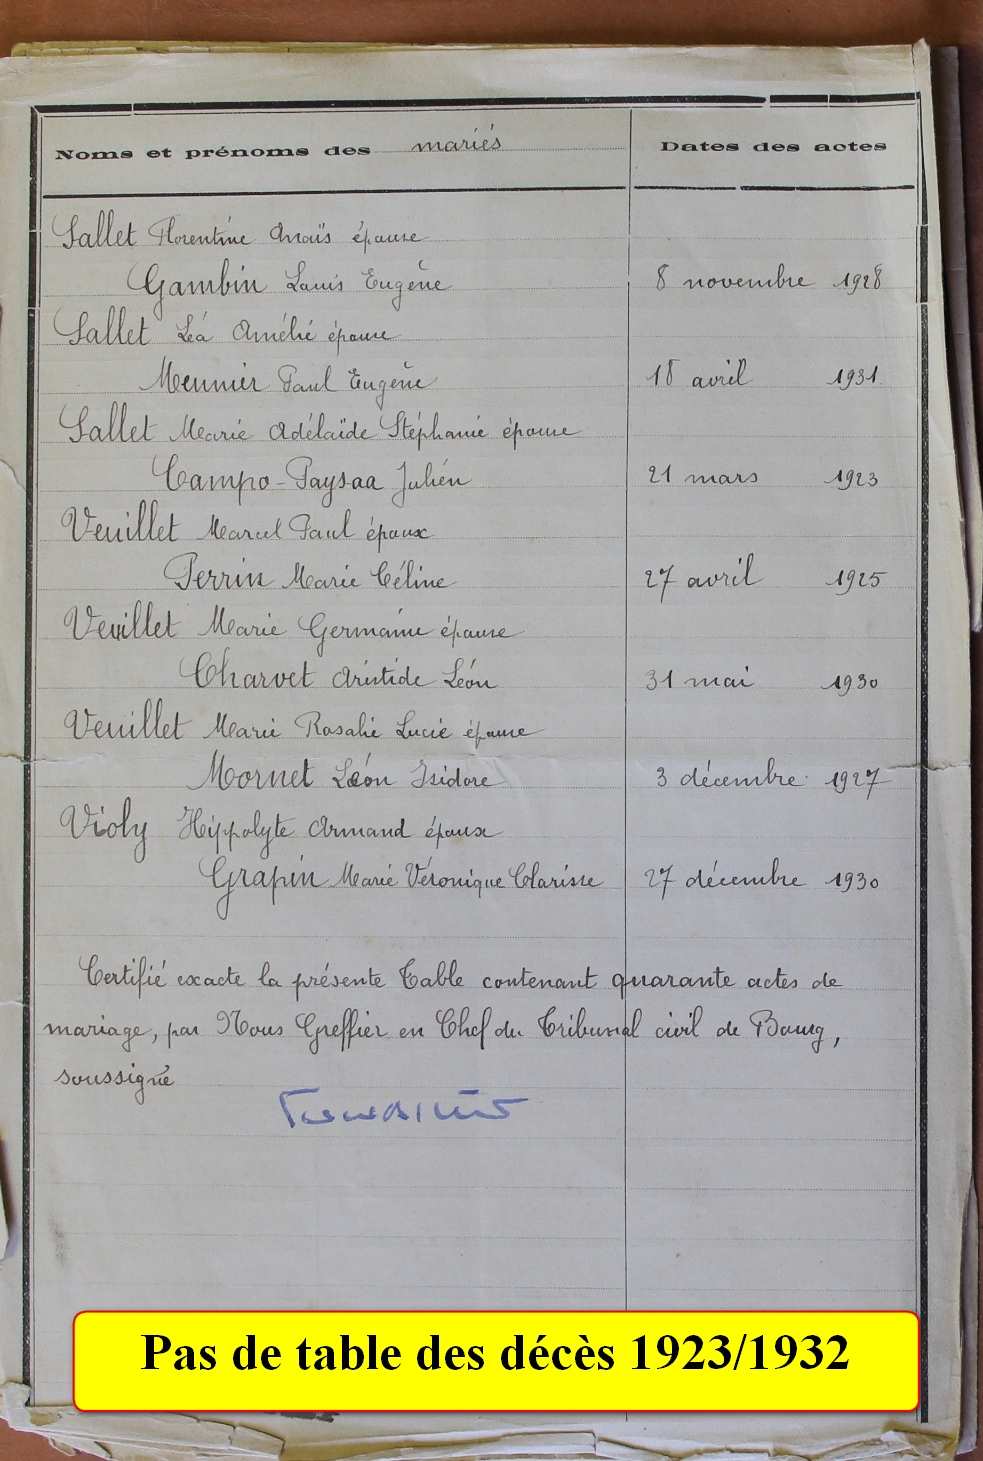 Noms et prénoms des mariés Dates des actes
Sallet Florentine Anaïs épouse
Gambin Louis Eugène 8 novembre 1928
Sallet Léa Amélie épouse
Meunier Paul Eugène 18 avril 1931
Sallet Marie Adélaïde Stéphanie épouse
Campo-Paysaa Julien 21 mars 1923
Veuillet Marcel Paul époux
Perrin Marie Céline 27 avril 1925
Veuillet Marie Germaine épouse
Charvet Aristide Léon 31 mai 1930
Veuillet Marie Rosalie Lucie épouse
Mornet Léon Isidore 3 décembre 1927
Violy Hippolyte Armand époux
Grapin Marie Véronique Clarisse 27 décembre 1930
Certifié exacte la présente Table contenant quarante actes de
mariage, par Nous Greffier en Chef du Tribunal civil de Bourg,
soussigné
Pas de table des décès 1923/1932